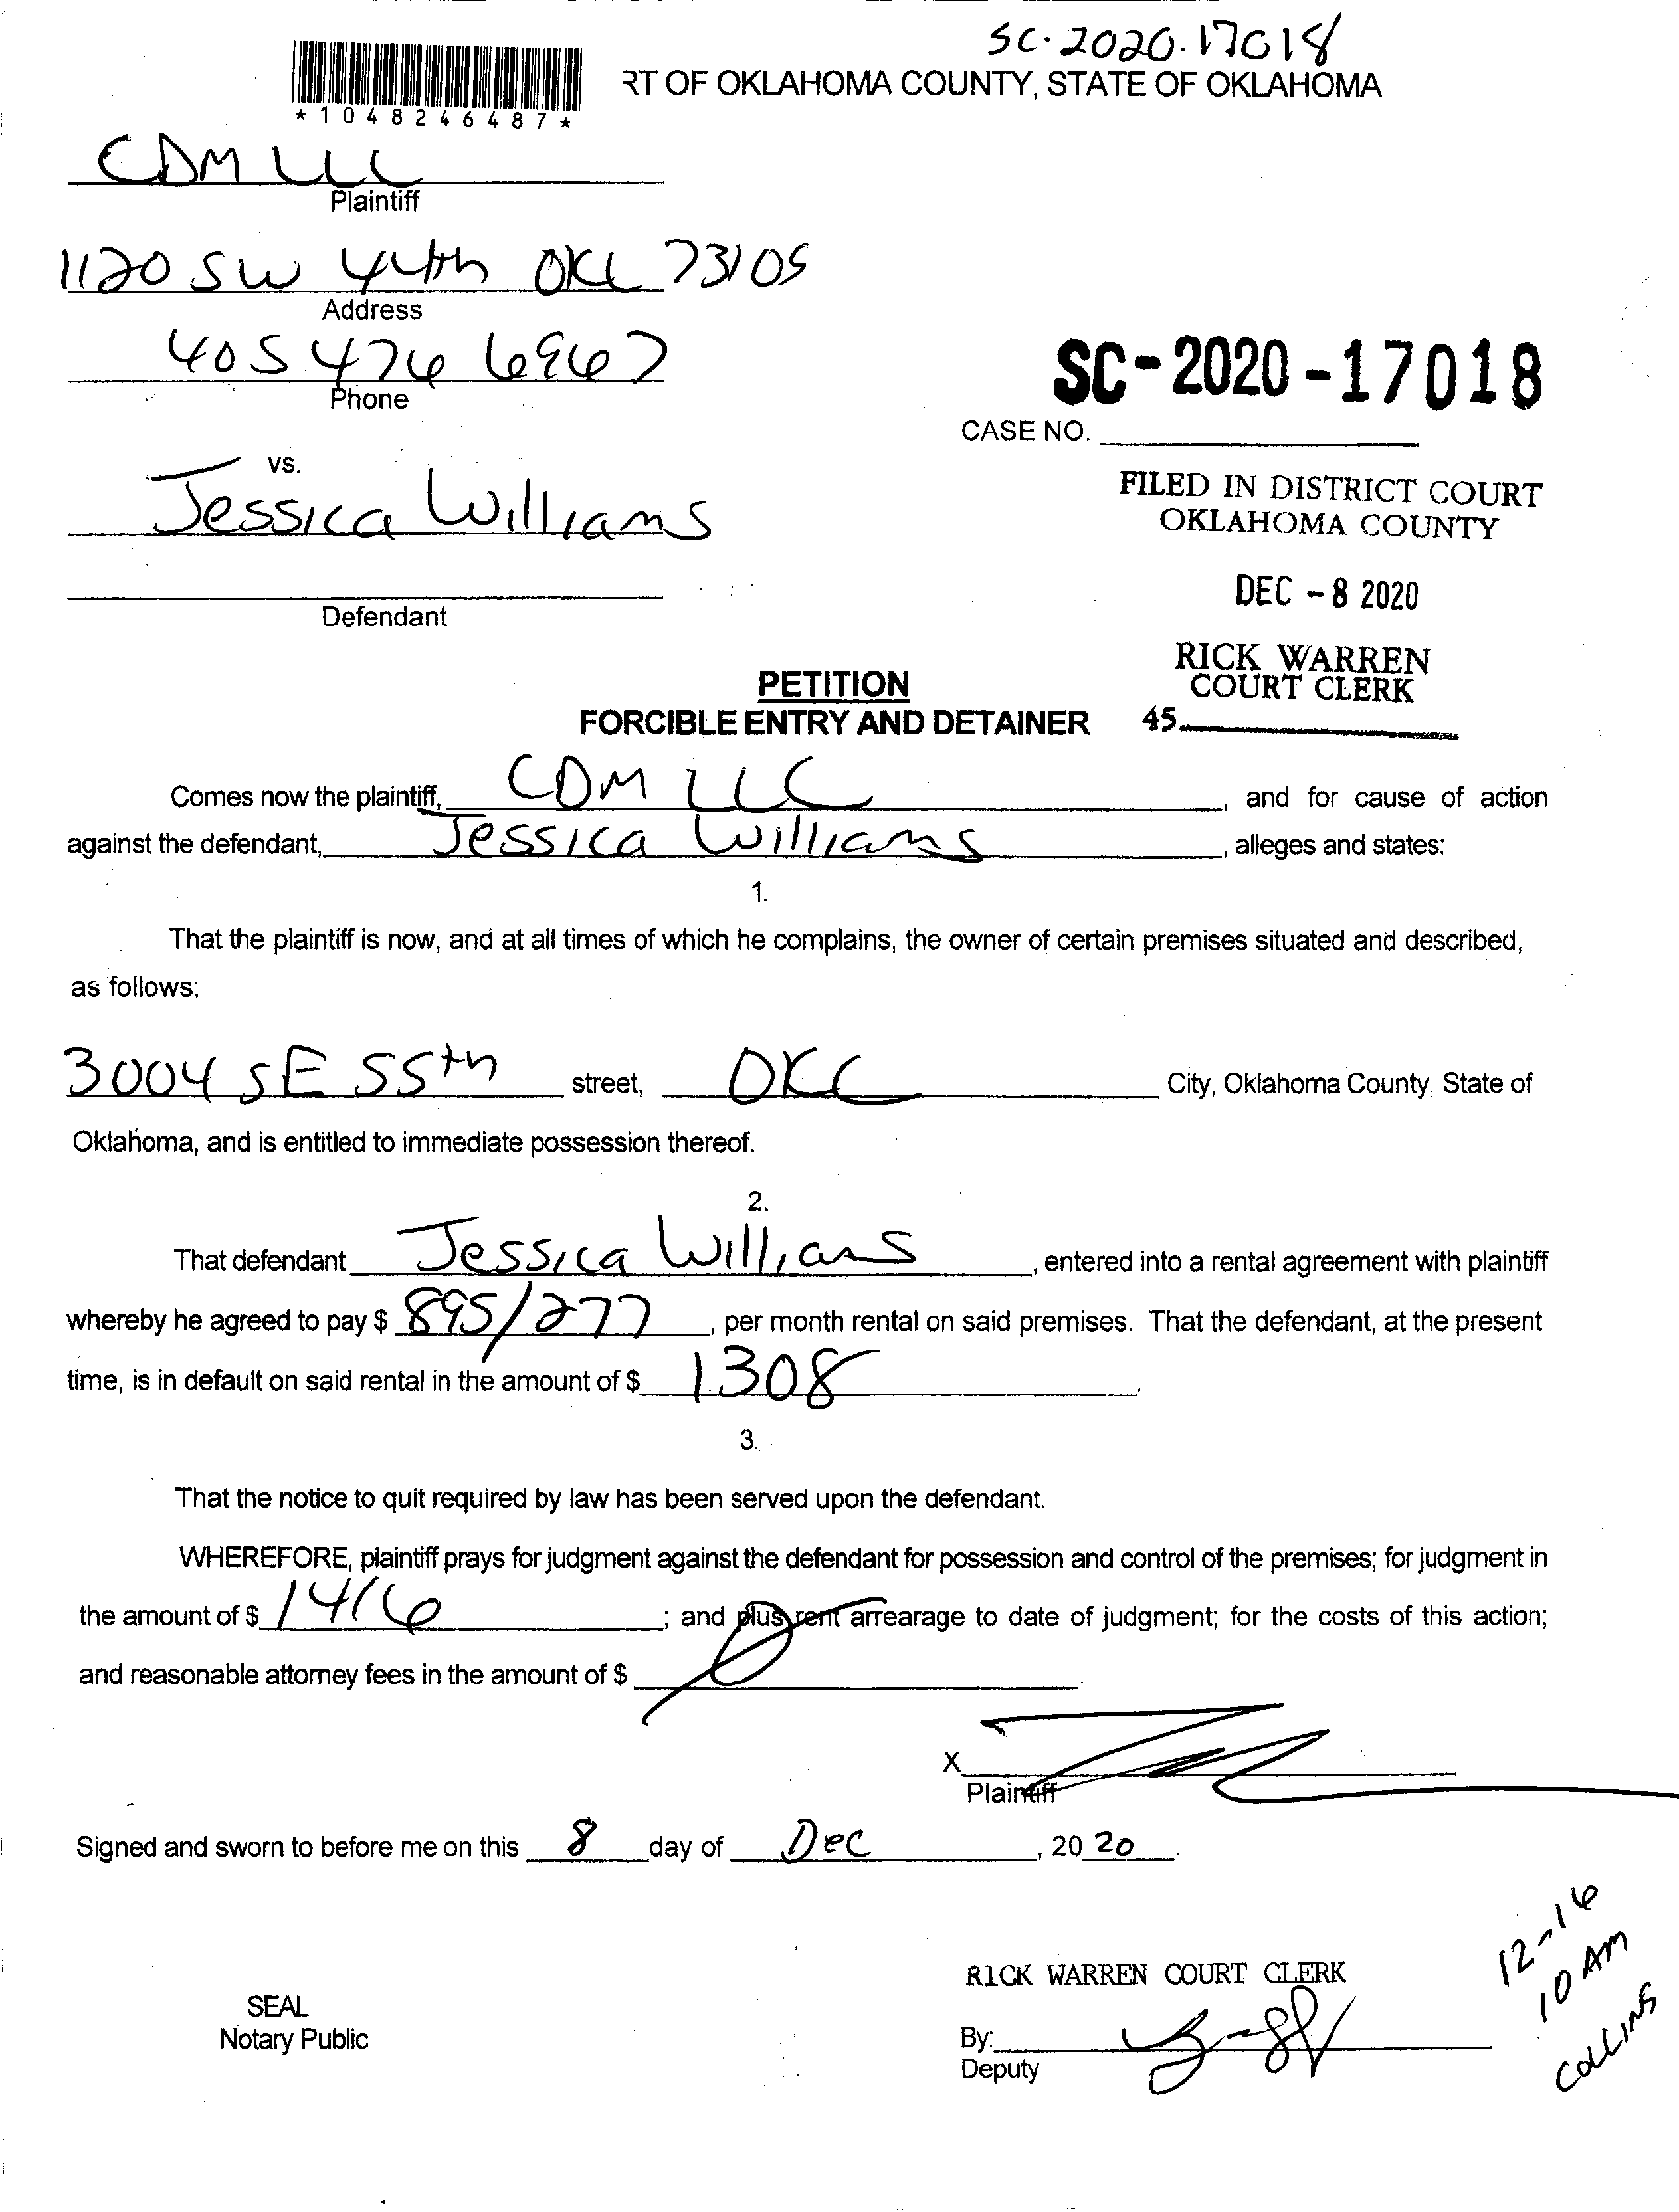 SC-2020-17018
RT OF OKLAHOMA COUNTY, STATE OF OKLAHOMA
*1048246487*
CDM LLC
Plaintiff
1120 SW 44th OKC 73105
Address
405 476 6967
Phone
SC-2020-17018
CASE NO.
vs.
Jessica Williams
FILED IN DISTRICT COURT
OKLAHOMA COUNTY
DEC - 8 2020
Defendant
RICK WARREN
COURT CLERK
45
PETITION
FORCIBLE ENTRY AND DETAINER
Comes now the plaintiff, CDM LLC, and for cause of action
against the defendant, Jessica Williams, alleges and states:
1.
That the plaintiff is now, and at all times of which he complains, the owner of certain premises situated and described,
as follows:
3004 SE 55th street, OKC City, Oklahoma County, State of
Oklahoma, and is entitled to immediate possession thereof.
2.
That defendant Jessica Willians, entered into a rental agreement with plaintiff
whereby he agreed to pay $ 895/277, per month rental on said premises. That the defendant, at the present
time, is in default on said rental in the amount of $ 1308.
3.
That the notice to quit required by law has been served upon the defendant.
WHEREFORE, plaintiff prays for judgment against the defendant for possession and control of the premises; for judgment in
the amount of $ 1416; and plus rent arrearage to date of judgment; for the costs of this action;
and reasonable attorney fees in the amount of $ .
X
Plaintiff
Signed and sworn to before me on this 8 day of Dec, 20 20.
12-16
10 AM
COLLINS
RICK WARREN COURT CLERK
SEAL
Notary Public
By:
Deputy